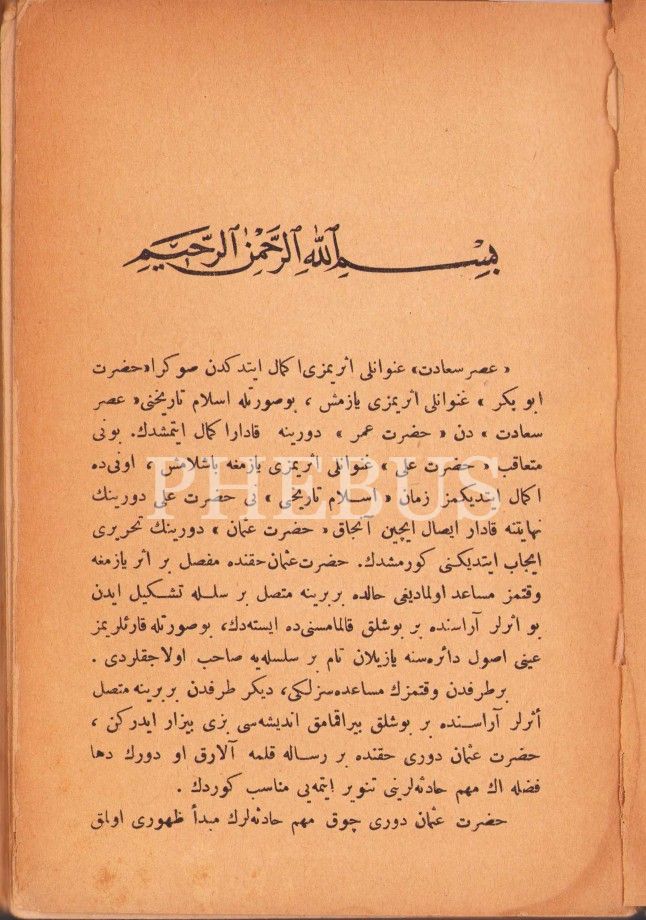 بِسْمِ اللهِ الرَّحْمٰنِ الرَّحِيمِ
« عصر سعادت » عنوانلی اثریمزی اكمال ایتدكدن صوكرا « حضرت
ابو بكر » عنوانلی اثریمزی یازمش ، بوصورتله اسلام تاریخنی « عصر
سعادت » دن « حضرت عمر » دورینه قادار اكمال ایتمشدك. بونی
متعاقب « حضرت علی » عنوانلی اثریمزی یازمغه باشلامش ، اونی‌ده
اكمال ایتدیكمز زمان « اسلام تاریخی » نی حضرت علی دورینك
نهایتنه قادار ایصال ایچین آنجاق « حضرت عثمان » دورینك تحریری
ایجاب ایتدیكنی كورمشدك. حضرت عثمان حقنده مفصل بر اثر یازمغه
وقتمز مساعد اولمادیغی حالده بربرینه متصل بر سلسله تشكیل ایدن
بو اثرلر آراسنده بر بوشلق قالمامسنی‌ده ایسته‌دك، بوصورتله قارئلریمز
عینی اصول دائره‌سنه یازیلان تام بر سلسله‌یه صاحب اولاجقلردی .
برطرفدن وقتمزك مساعده‌سزلكی، دیكر طرفدن بربرینه متصل
أثرلر آراسنده بر بوشلق بیراقمامق اندیشه‌سی بزی بیزار ایدركن ،
حضرت عثمان دوری حقنده بر رساله قلمه آلارق او دورك دها
فضله اك مهم حادثه‌لرینی تنویر ایتمه‌یی مناسب كوردك .
حضرت عثمان دوری چوق مهم حادثه‌لرك مبدأ ظهوری اولمق
PHEBUS